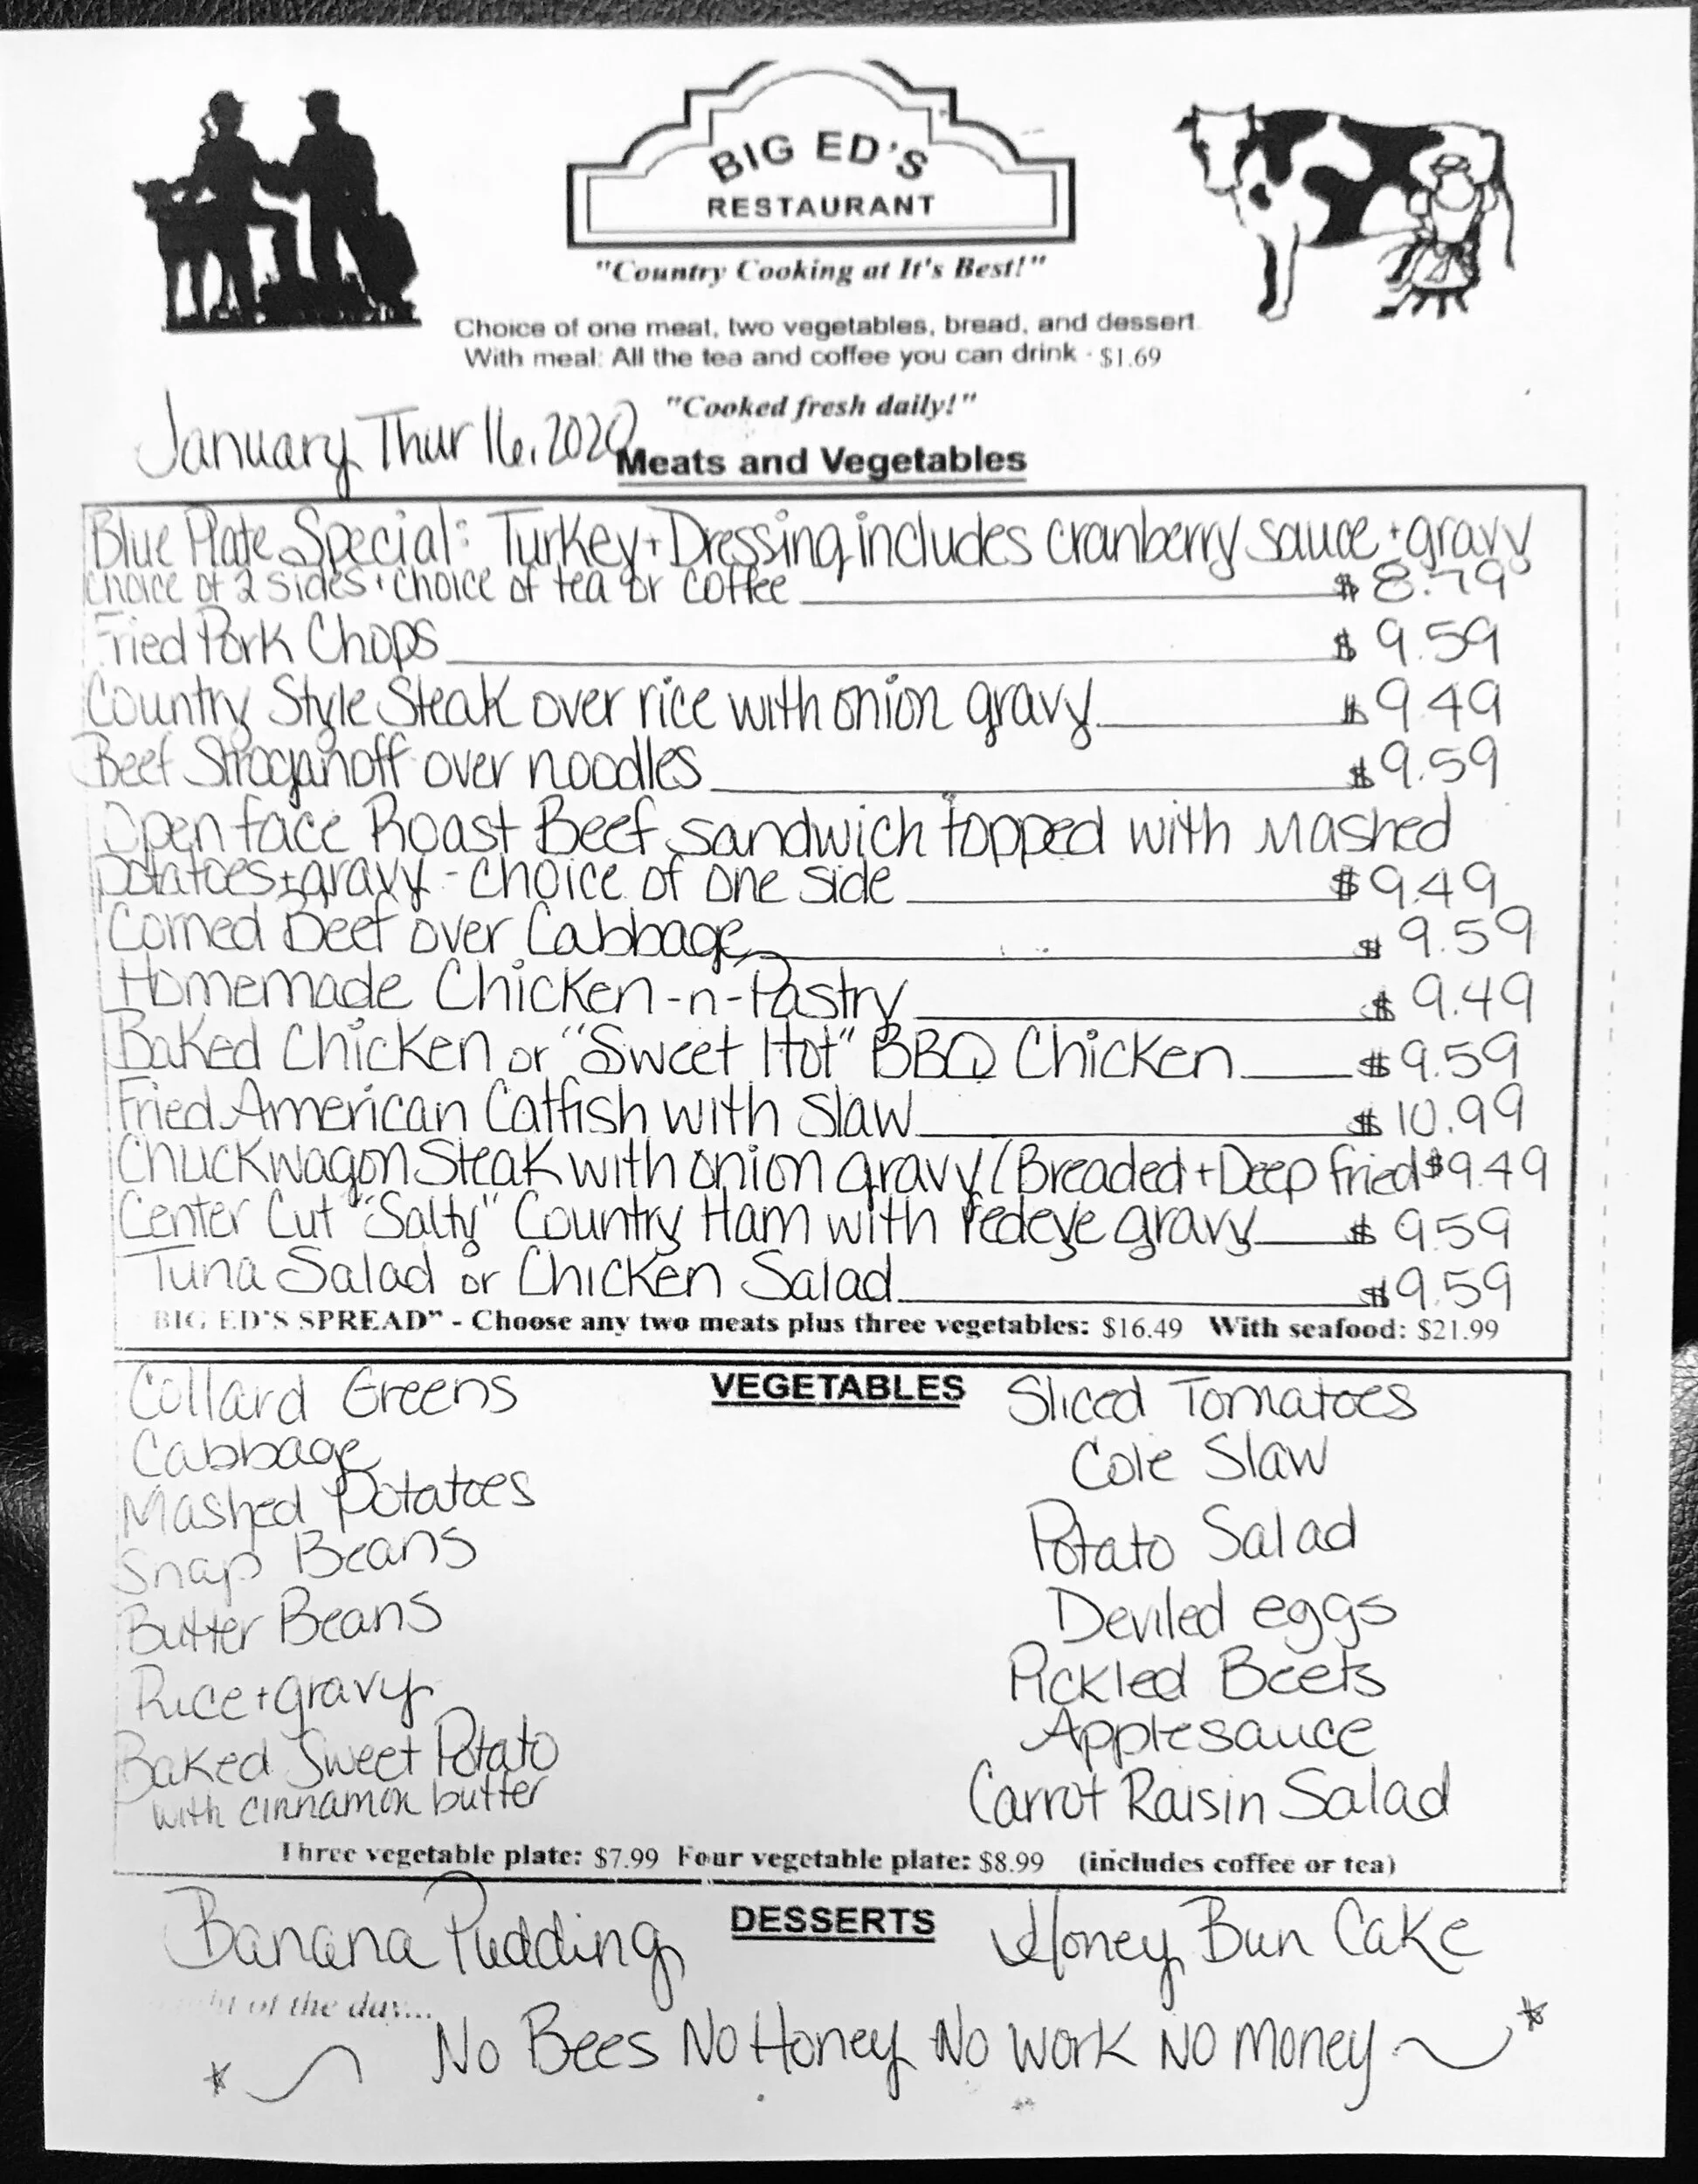 BIG ED'S
RESTAURANT
"Country Cooking at It's Best!"
Choice of one meat, two vegetables, bread, and dessert
With meal: All the tea and coffee you can drink - $1.69
"Cooked fresh daily!"
January Thur 16, 2020
Meats and Vegetables
Blue Plate Special: Turkey + Dressing includes cranberry sauce + gravy
choice of 2 sides + choice of tea or coffee $8.79
Fried Pork Chops $9.59
Country Style Steak over rice with onion gravy $9.49
Beef Stroganoff over noodles $9.59
Open face Roast Beef sandwich topped with Mashed
potatoes + gravy - choice of one side $9.49
Corned Beef over Cabbage $9.59
Homemade Chicken-n-Pastry $9.49
Baked Chicken or "Sweet Hot" BBQ Chicken $9.59
Fried American Catfish with slaw $10.99
Chuckwagon Steak with onion gravy (Breaded + Deep fried $9.49
Center Cut "Salty" Country Ham with redeye gravy $9.59
Tuna Salad or Chicken Salad $9.59
BIG ED'S SPREAD" - Choose any two meats plus three vegetables: $16.49 With seafood: $21.99
VEGETABLES
Collard Greens
Cabbage
Mashed Potatoes
Snap Beans
Butter Beans
Rice + gravy
Baked Sweet Potato
with cinnamon butter
Sliced Tomatoes
Cole Slaw
Potato Salad
Deviled eggs
Pickled Beets
Applesauce
Carrot Raisin Salad
Three vegetable plate: $7.99 Four vegetable plate: $8.99 (includes coffee or tea)
DESSERTS
Banana Pudding
Honey Bun Cake
of the day...
No Bees No Honey No work No money